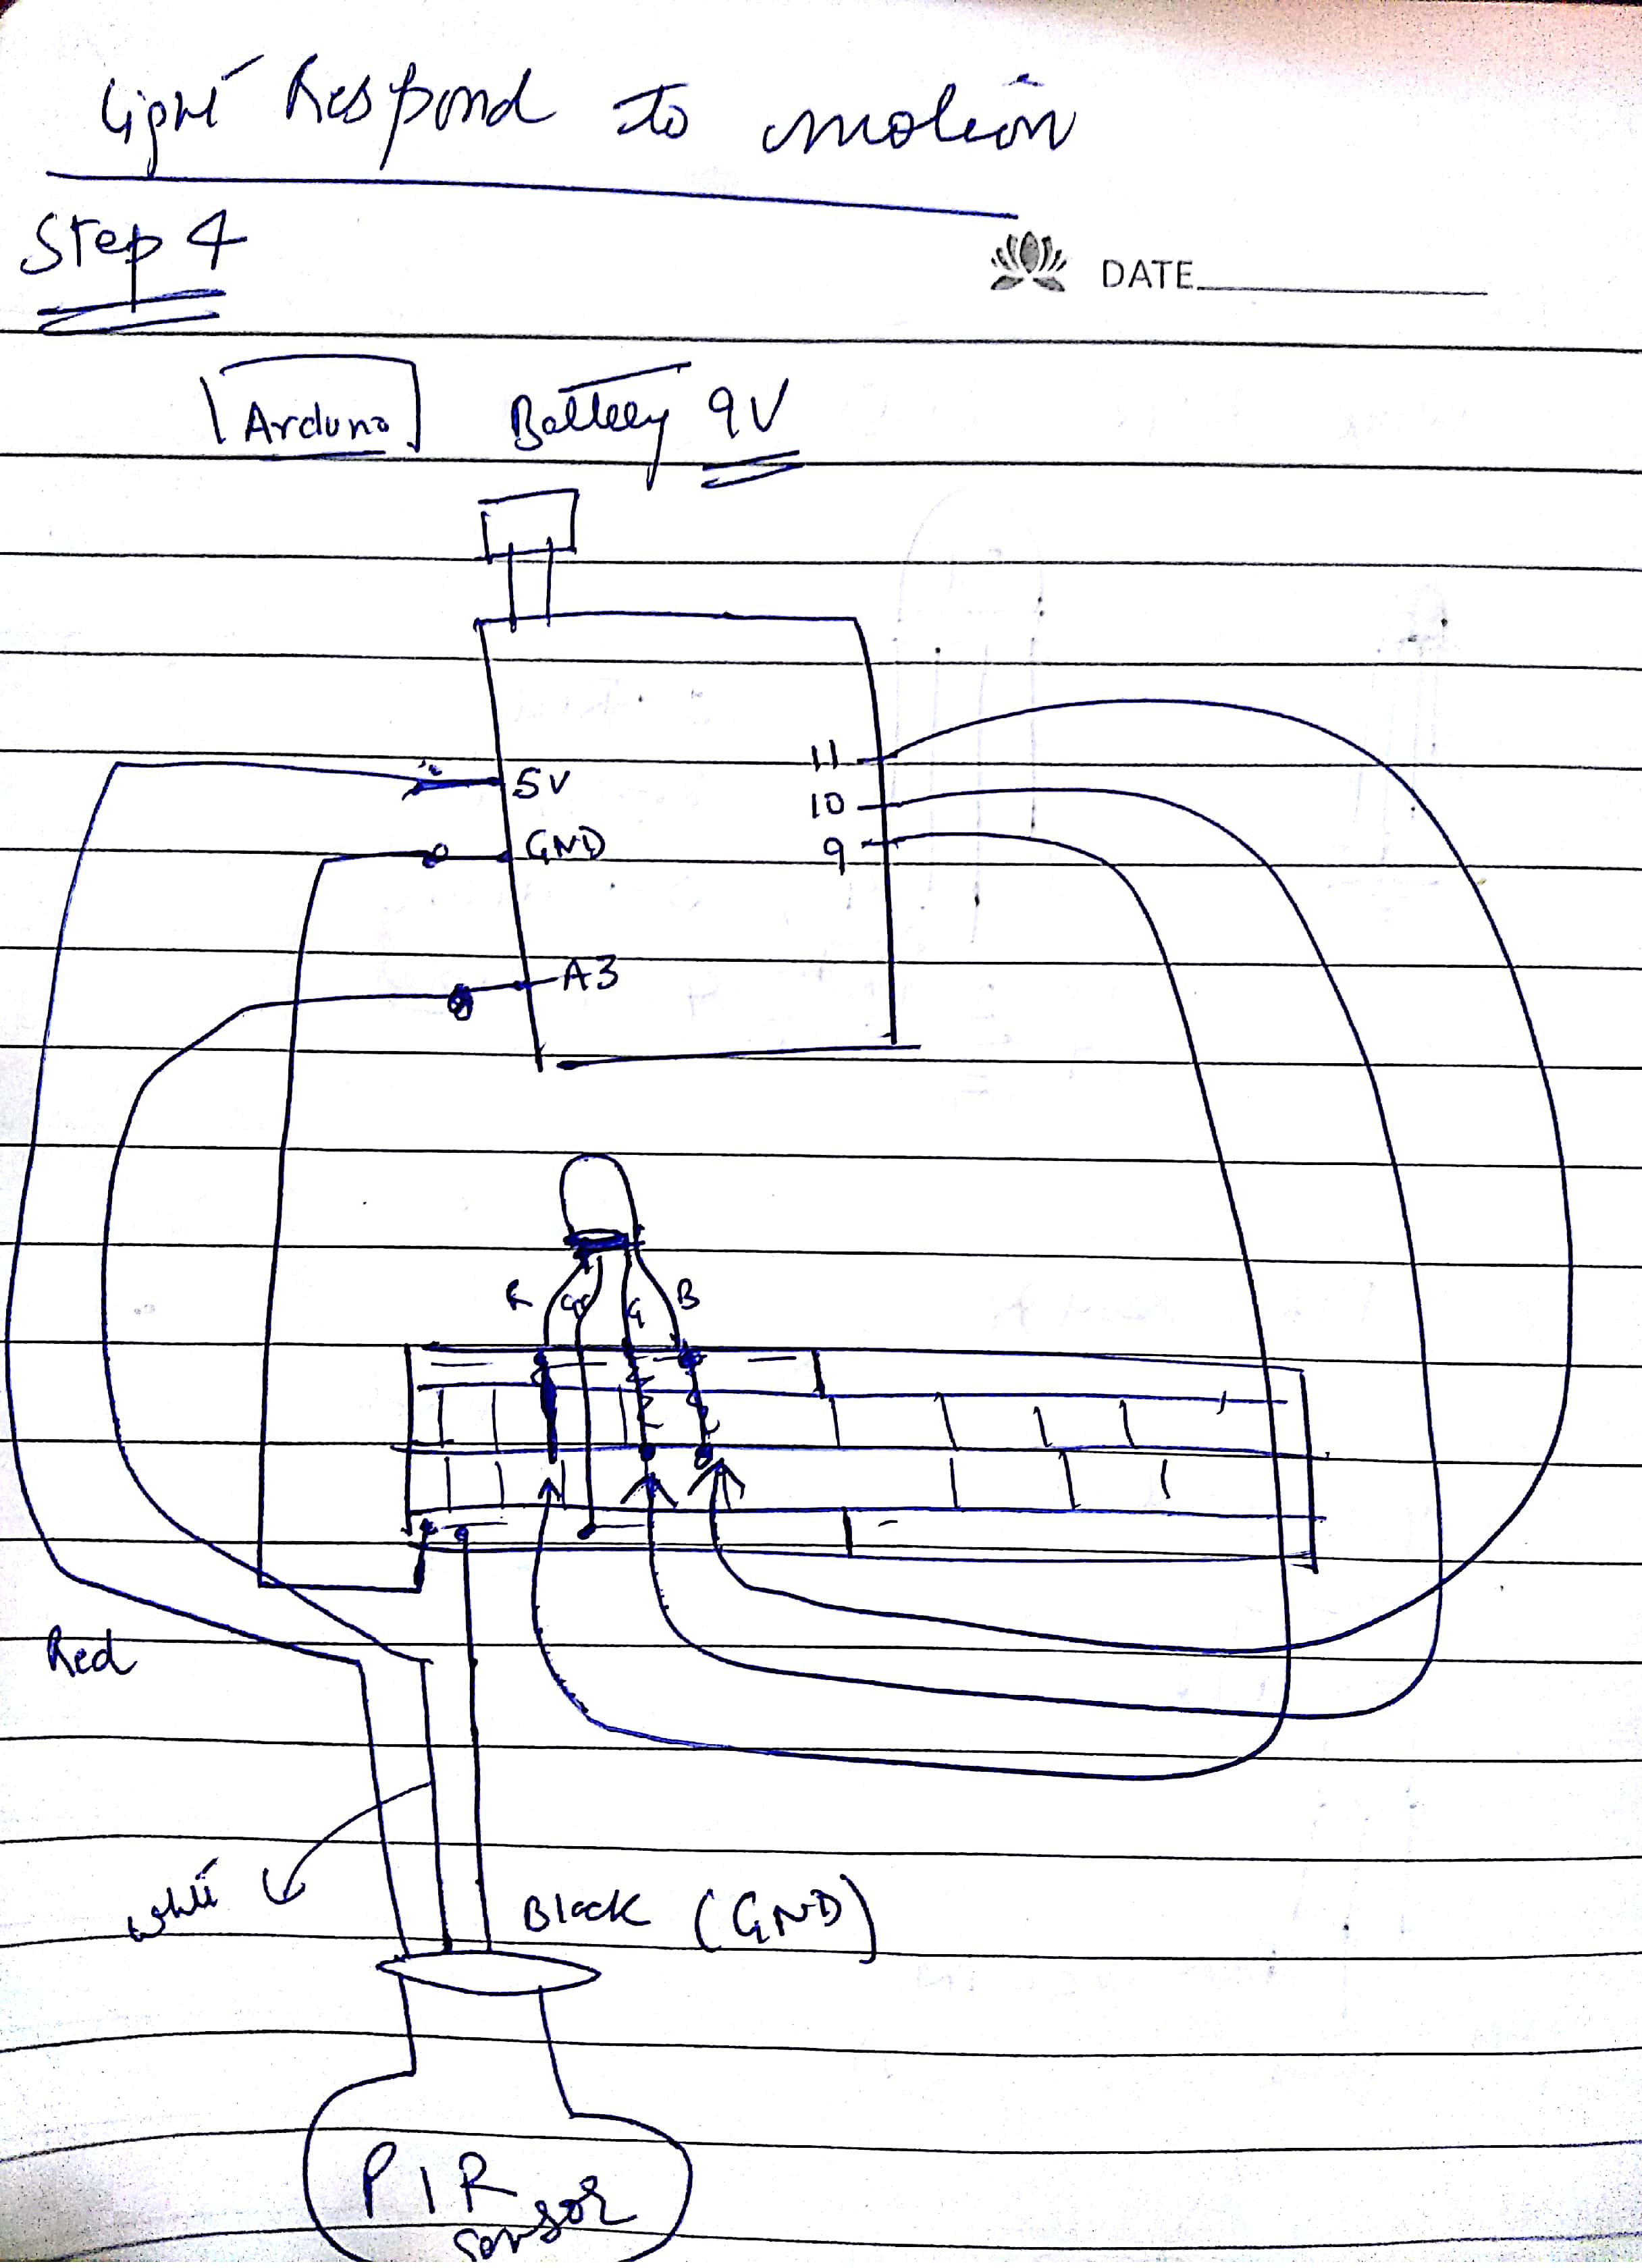 Light Respond to motion
Step 4
DATE
Arduno Battery 9V
11
5V
10
GND
9
A3
R G B
Red
White
Black (GND)
PIR
sensor